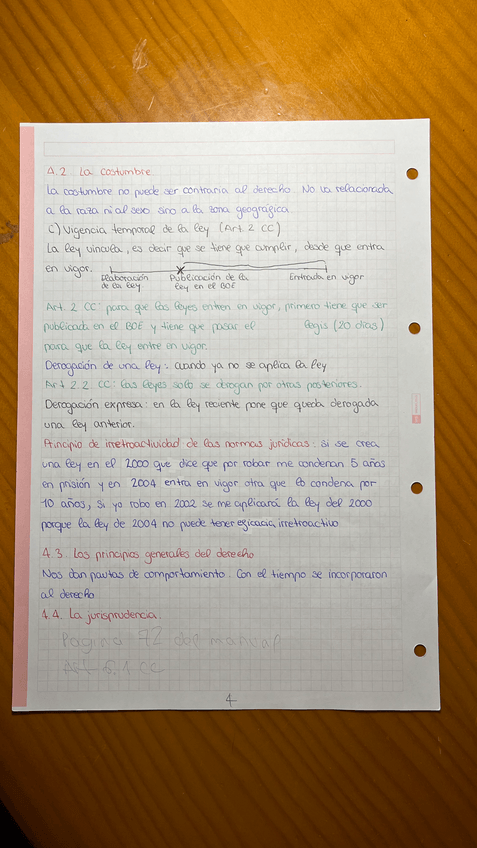 4.2. La costumbre
La costumbre no puede ser contraria al derecho. No va relacionada
a la raza ni al sexo sino a la zona geográfica.
C) Vigencia temporal de la ley (Art. 2 CC)
La ley vincula, es decir que se tiene que cumplir, desde que entra
en vigor.
Elaboración de la ley
Publicación de la ley en el BOE
Entrada en vigor
Art. 2 CC: para que las leyes entren en vigor, primero tiene que ser
publicada en el BOE y tiene que pasar el legis (20 días)
para que la ley entre en vigor.
Derogación de una ley: cuando ya no se aplica la ley
Art 2.2. CC: las leyes solo se drogan por otras posteriores.
Derogación expresa: en la ley reciente pone que queda derogada
una ley anterior.
Principio de irretroactividad de las normas jurídicas: si se crea
una ley en el 2000 que dice que por robar me condenan 5 años
en prisión y en 2004 entra en vigor otra que lo condena por
10 años, si yo robo en 2002 se me aplicará la ley del 2000
porque la ley de 2004 no puede tener eficacia irretroactivo
4.3. Los principios generales del derecho
Nos dan pautas de comportamiento. Con el tiempo se incorporaron
al derecho
4.4. La jurisprudencia.
Página 72 del manual
Art 6.1 CC
4